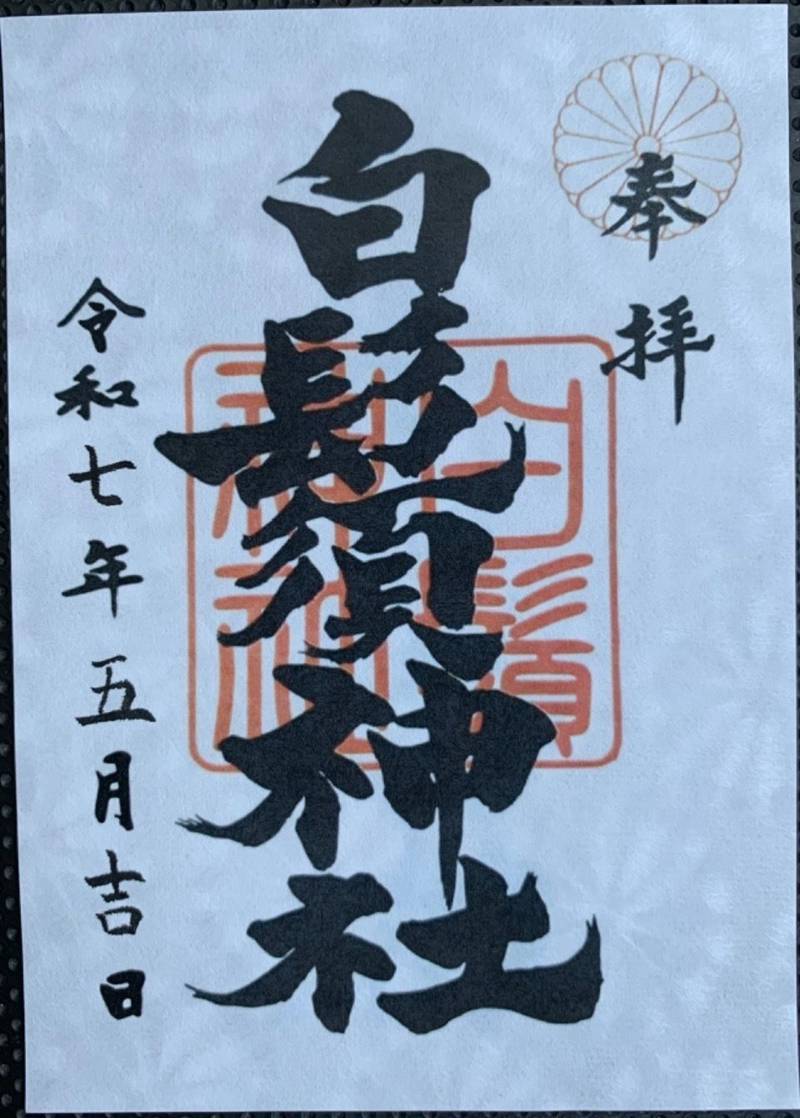 奉拝
白鬚神社
令和七年五月吉日
白鬚
神社